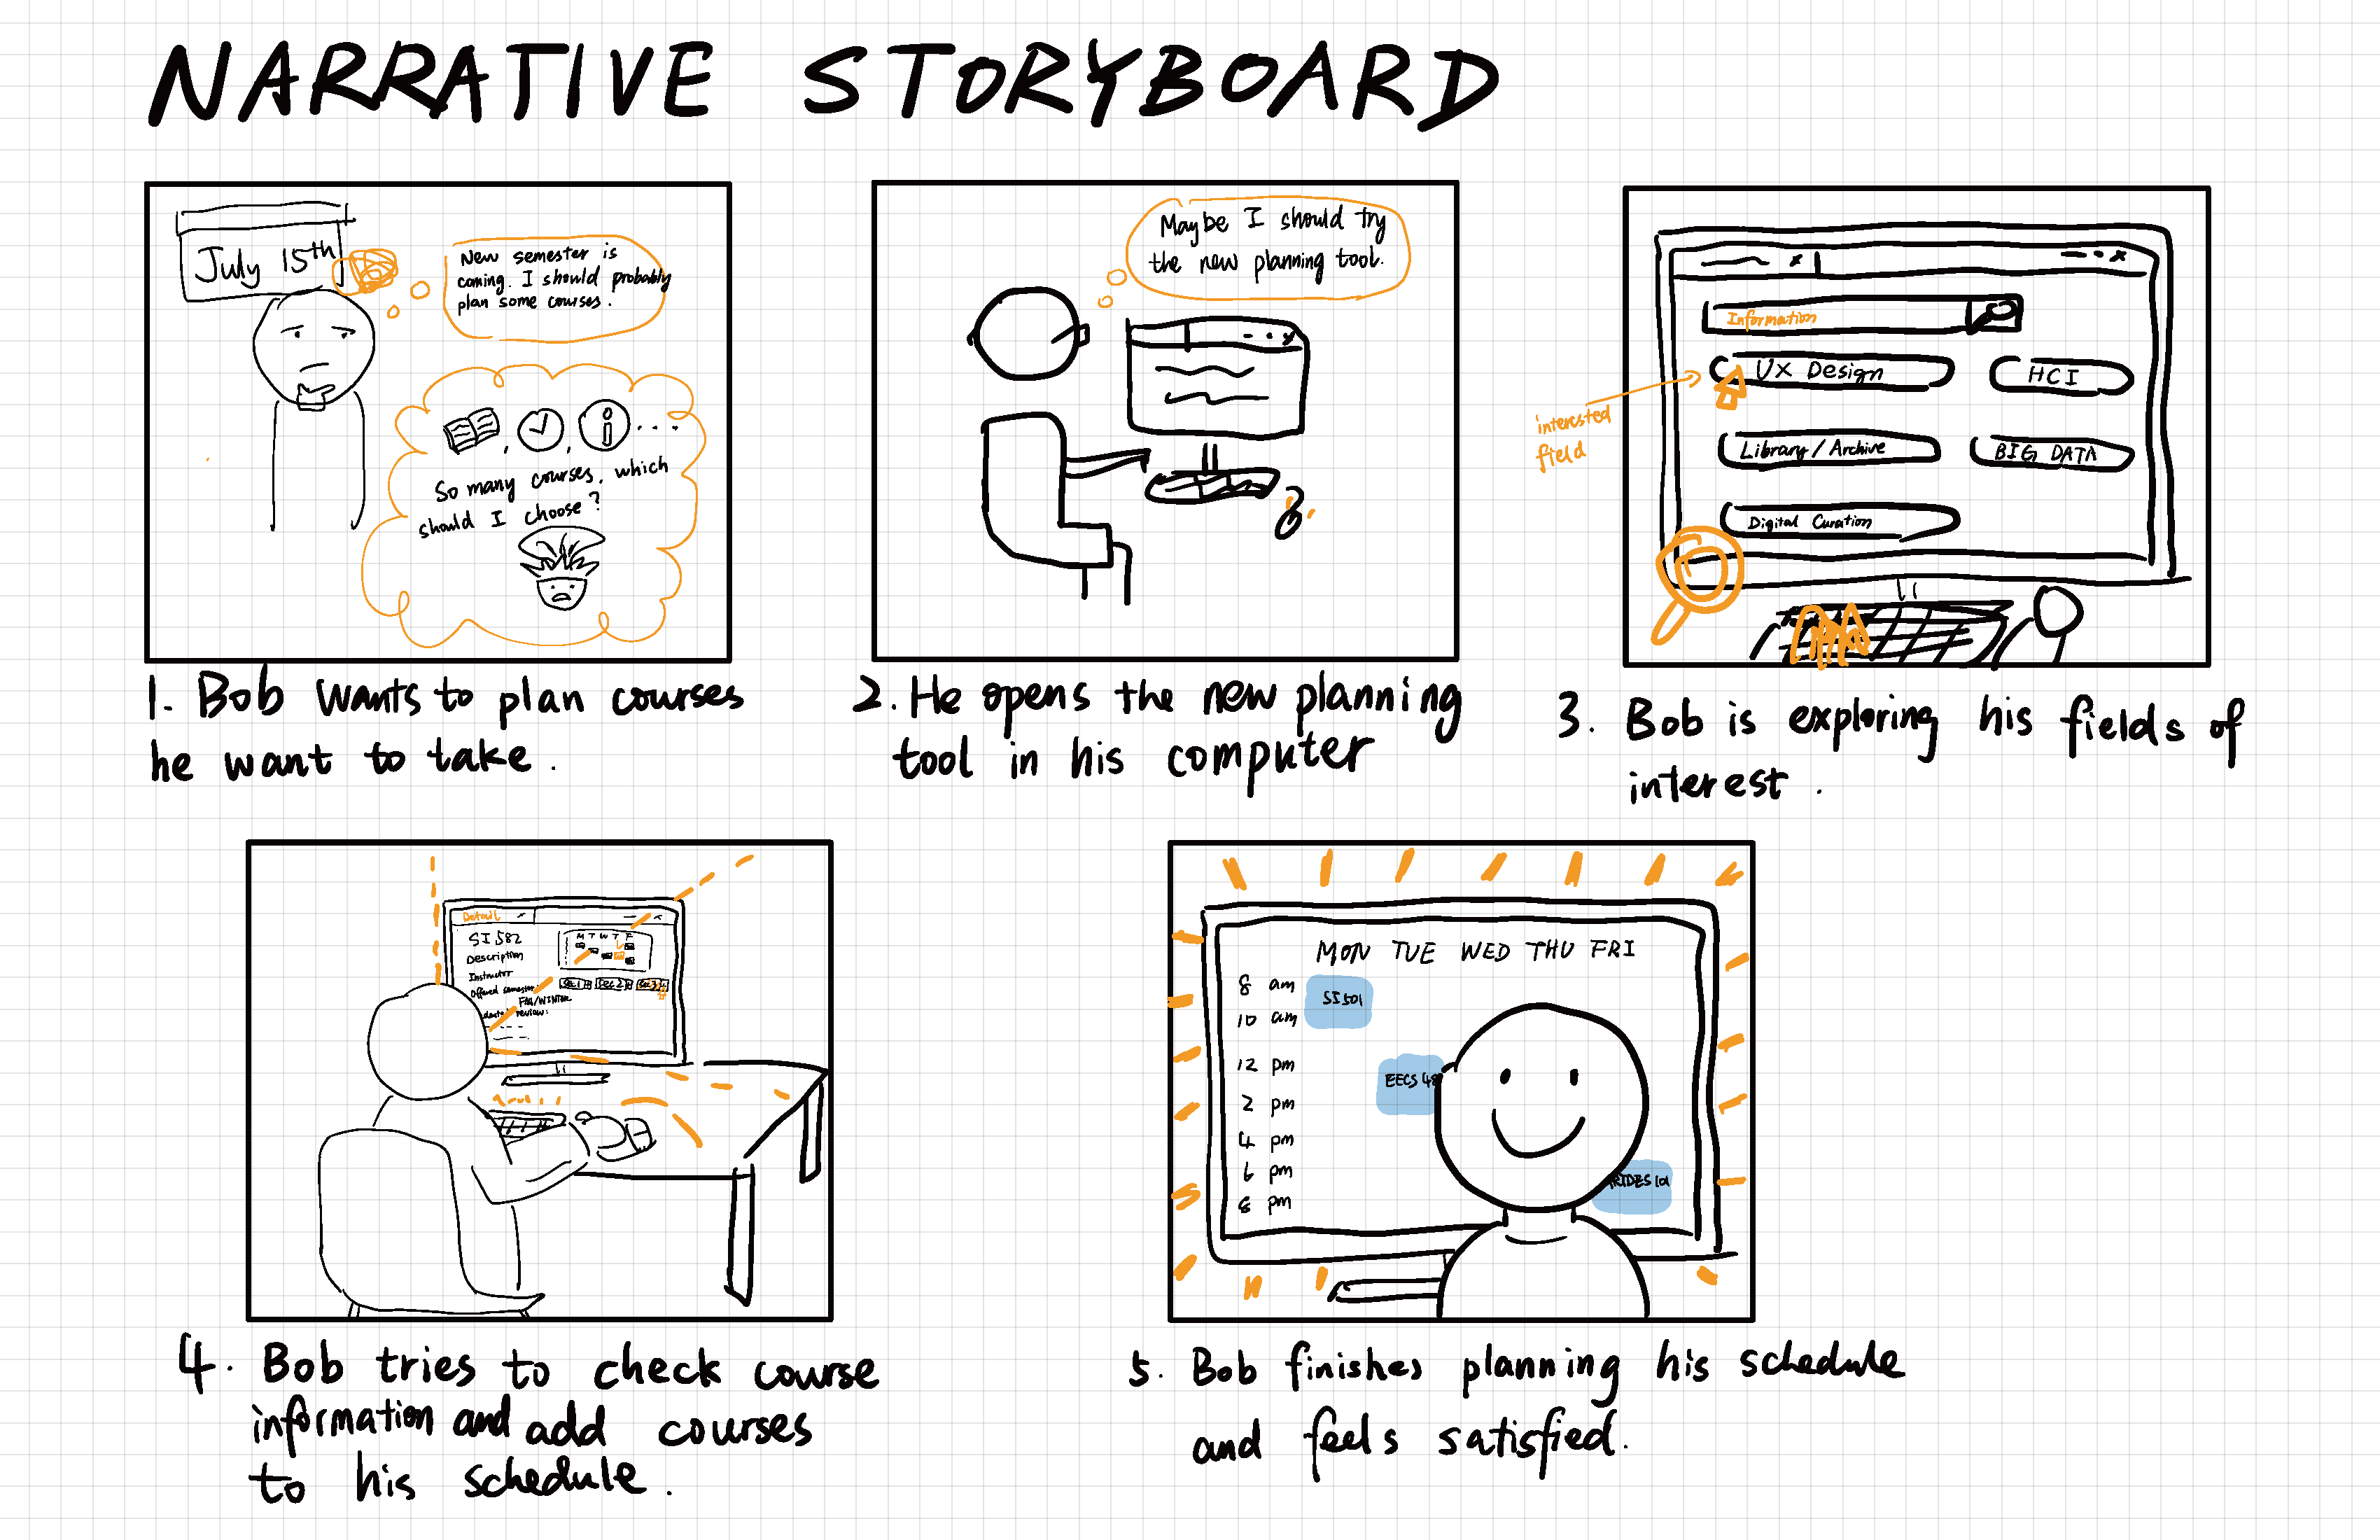 NARRATIVE STORYBOARD
July 15th
New semester is
coming. I should probably
plan some courses.
So many courses, which
should I choose?
1. Bob wants to plan courses
he want to take.
Maybe I should try
the new planning tool.
2. He opens the new planning
tool in his computer
Information
UX Design
HCI
interested
field
Library / Archive
BIG DATA
Digital Curation
3. Bob is exploring his fields of
interest.
Detail
SI 582
M T W T F
Description
Instructor
Offered semester:
Sec 1
Sec 2
Sec 3
FALL/WINTER
review:
4. Bob tries to check course
information and add courses
to his schedule.
MON TUE WED THU FRI
8 am
SI 501
10 am
12 pm
EECS 48
2 pm
4 pm
6 pm
RIDES 101
8 pm
5. Bob finishes planning his schedule
and feels satisfied.